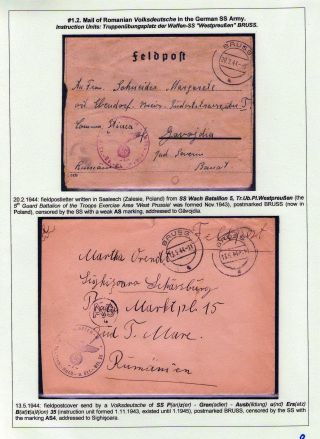 #1.2. Mail of Romanian Volksdeutsche in the German SS Army.
Instruction Units: Truppenübungsplatz der Waffen-SS "Westpreußen" BRUSS.
Feldpost
BRUSS
20.2.44
An Frau Schneider Margarete
Comuna
Gavojdia
Jud Severin
Rumänien Banat
20.2.1944: fieldpostletter written in Saalesch (Zalesie, Poland) from SS Wach Bataillon 5, Tr.Ub.Pl.Westpreußen (the
5th Guard Battalion of the Troops Exercise Area 'West Prussia' was formed Nov.1943), postmarked BRUSS (now in
Poland), censored by the SS with a weak AS marking, addressed to Găvojdia.
BRUSS
13.5.44
Feldpost
Martha Orend
Sighişoara Schäsburg
Marktpl. 15
Jud T. Mare.
Rumänien
13.5.1944: fieldpostcover send by a Volksdeutsche of SS P(an)z(er) - Gren(adier) - Ausb(ildung) u(nd) Ers(atz)
B(at)t(ail)l(on) 35 (instruction unit formed 1.11.1943, existed until 1.1945), postmarked BRUSS, censored by the SS with
the marking AS4, addressed to Sighişoara.